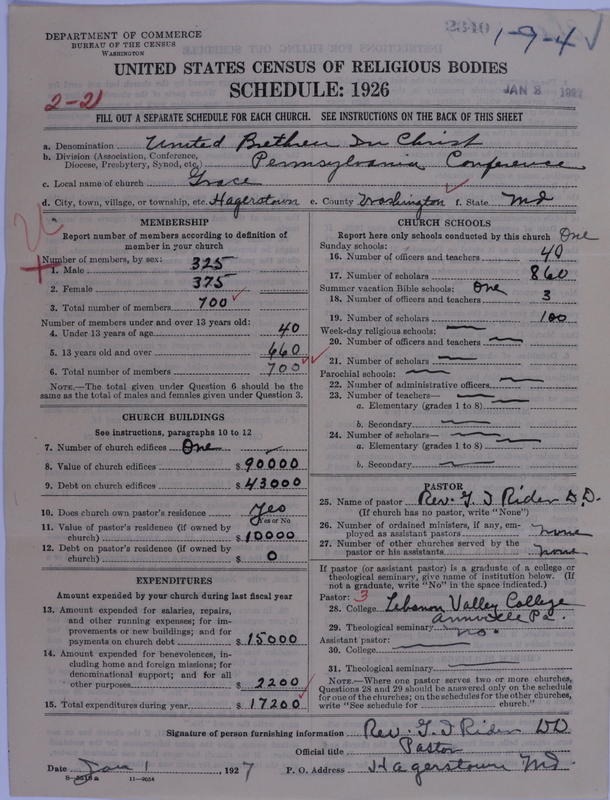 2340
1-9-4
DEPARTMENT OF COMMERCE
BUREAU OF THE CENSUS
WASHINGTON
UNITED STATES CENSUS OF RELIGIOUS BODIES
SCHEDULE: 1926
JAN 8 1927
2-21
FILL OUT A SEPARATE SCHEDULE FOR EACH CHURCH. SEE INSTRUCTIONS ON THE BACK OF THIS SHEET
a. Denomination United Brethren In Christ
b. Division (Association, Conference, Diocese, Presbytery, Synod, etc.) Pennsylvania Conference
c. Local name of church Grace
d. City, town, village, or township, etc. Hagerstown e. County Washington f. State Md
MEMBERSHIP
Report number of members according to definition of
member in your church
Number of members, by sex:
1. Male 325
2. Female 375
3. Total number of members 700
Number of members under and over 13 years old:
4. Under 13 years of age 40
5. 13 years old and over 660
6. Total number of members 700
NOTE.—The total given under Question 6 should be
same as the total of males and females given under Question 3.
CHURCH BUILDINGS
See instructions, paragraphs 10 to 12
7. Number of church edifices One
8. Value of church edifices $ 90000
9. Debt on church edifices $ 43000
10. Does church own pastor's residence? Yes
Yes or No
11. Value of pastor's residence (if owned by
church) $ 10000
12. Debt on pastor's residence (if owned by
church) $ 0
EXPENDITURES
Amount expended by your church during last fiscal year
13. Amount expended for salaries, repairs,
and other running expenses; for im-
provements or new buildings; and for
payments on church debt $ 15000
14. Amount expended for benevolences, in-
cluding home and foreign missions; for
denominational support; and for all
other purposes $ 2200
15. Total expenditures during year $ 17200
CHURCH SCHOOLS
Report here only schools conducted by this church One
Sunday schools:
16. Number of officers and teachers 40
17. Number of scholars 860
Summer vacation Bible schools: One
18. Number of officers and teachers 3
19. Number of scholars 100
Week-day religious schools:
20. Number of officers and teachers
21. Number of scholars
Parochial schools:
22. Number of administrative officers
23. Number of teachers—
a. Elementary (grades 1 to 8)
b. Secondary
24. Number of scholars—
a. Elementary (grades 1 to 8)
b. Secondary
PASTOR
25. Name of pastor Rev. G. I Rider D.D.
(If church has no pastor, write "None")
26. Number of ordained ministers, if any, em-
ployed as assistant pastors none
27. Number of other churches served by the
pastor or his assistants none
If pastor (or assistant pastor) is a graduate of a college or
theological seminary, give name of institution below. (If
not a graduate, write "No" in the space indicated.)
Pastor: 3
28. College Lebanon Valley College
Annville Pa.
29. Theological seminary no.
Assistant pastor:
30. College
31. Theological seminary
NOTE.—Where one pastor serves two or more churches,
Questions 28 and 29 should be answered only on the schedule
for one of the churches; on the schedules for the other churches,
write "See schedule for church."
Signature of person furnishing information Rev. G. I Rider DD
Official title Pastor
Date Jan 1, 1927 P. O. Address Hagerstown Md.
11—9654